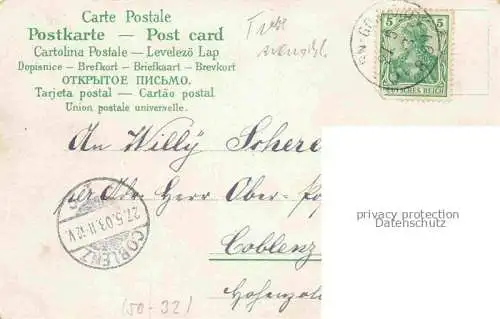 Carte Postale
Postkarte — Post card
Cartolina Postale — Levelező Lap
Dopisnice — Brefkort — Briefkaart — Brevkort
ОТКРЫТОЕ ПИСЬМО.
Tarjeta postal — Cartão postal
Union postale universelle.
5 5
DEUTSCHES REICH
An Willy Schere
per Adr. Herr Ober-Po
Coblenz
Hohenzol
27.5.03.11-12.V.
COBLENZ
privacy protection
Datenschutz
(50-32)